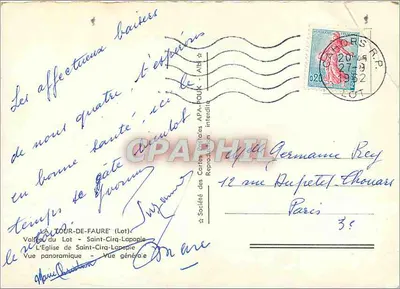 Les affectueux baisers
de nous quatre, t'espérons
en bonne santé, ici le
temps se gâte
Yvonne
Suzanne
LA TOUR-DE-FAURE (Lot)
Vallée du Lot - Saint-Cirq-Lapopie
L'Eglise de Saint-Cirq-Lapopie
Vue panoramique - Vue générale
Société des Cartes Postales APA-POUX - Albi
Reproduction interdite
CPAPHIL.COM
0,20
CAHORS R.P.
27-9
1962
LOT
Mlle Germaine Rey
12 rue Dupetit-Thouars
Paris
3e